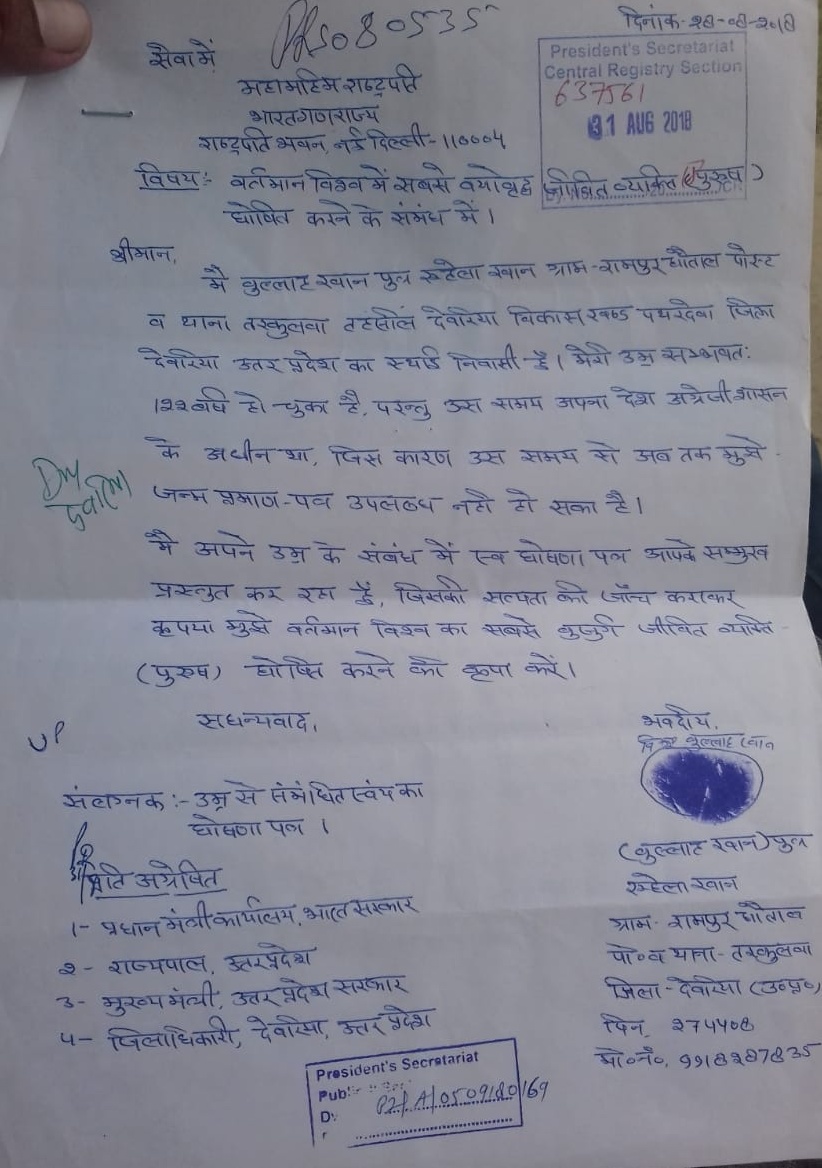 PRS080535
दिनांक-28-08-2018
सेवा में
President's Secretariat
Central Registry Section
637561
31 AUG 2018
महामहिम राष्ट्रपति
भारत गणराज्य
राष्ट्रपति भवन, नई दिल्ली-110004
विषय:- वर्तमान विश्व में सबसे वयोवृद्ध जीवित व्यक्ति (पुरुष)
घोषित करने के संबंध में।
श्रीमान,
मै वुल्लाह खान पुत्र रूहेला खान ग्राम-रामपुर धौताल पोस्ट
व थाना तरकुलवा तहसील देवरिया विकास खण्ड पथरदेवा जिला
देवरिया उत्तर प्रदेश का स्थाई निवासी हूँ। मेरी उम्र सम्भवत:
122 वर्ष हो चुका है, परन्तु उस समय अपना देश अंग्रेजी शासन
के अधीन था, जिस कारण उस समय से अब तक मुझे
जन्म प्रमाण-पत्र उपलब्ध नही हो सका है।
मै अपने उम्र के संबंध में स्व घोषणा पत्र आपके सम्मुख
प्रस्तुत कर रहा हूँ, जिसकी सत्यता की जाँच कराकर
कृपया मुझे वर्तमान विश्व का सबसे बुजुर्ग जीवित व्यक्ति-
(पुरुष) घोषित करने की कृपा करें।
सधन्यवाद,
भवदीय,
वुल्लाह खान
UP
संलग्नक:- उम्र से संबंधित स्वंय का
घोषणा पत्र।
(वुल्लाह खान) पुत्र
रूहेला खान
ग्राम- रामपुर धौताल
पो० व थाना- तरकुलवा
जिला-देवरिया (उ०प्र०)
पिन, 274408
मो०नं०, 9918287835
प्रति अग्रेषित
1- प्रधान मंत्री कार्यालय, भारत सरकार
2- राज्यपाल, उत्तर प्रदेश
3- मुख्य मंत्री, उत्तर प्रदेश सरकार
4- जिलाधिकारी, देवरिया, उत्तर प्रदेश
President's Secretariat
P2/A/0509180169